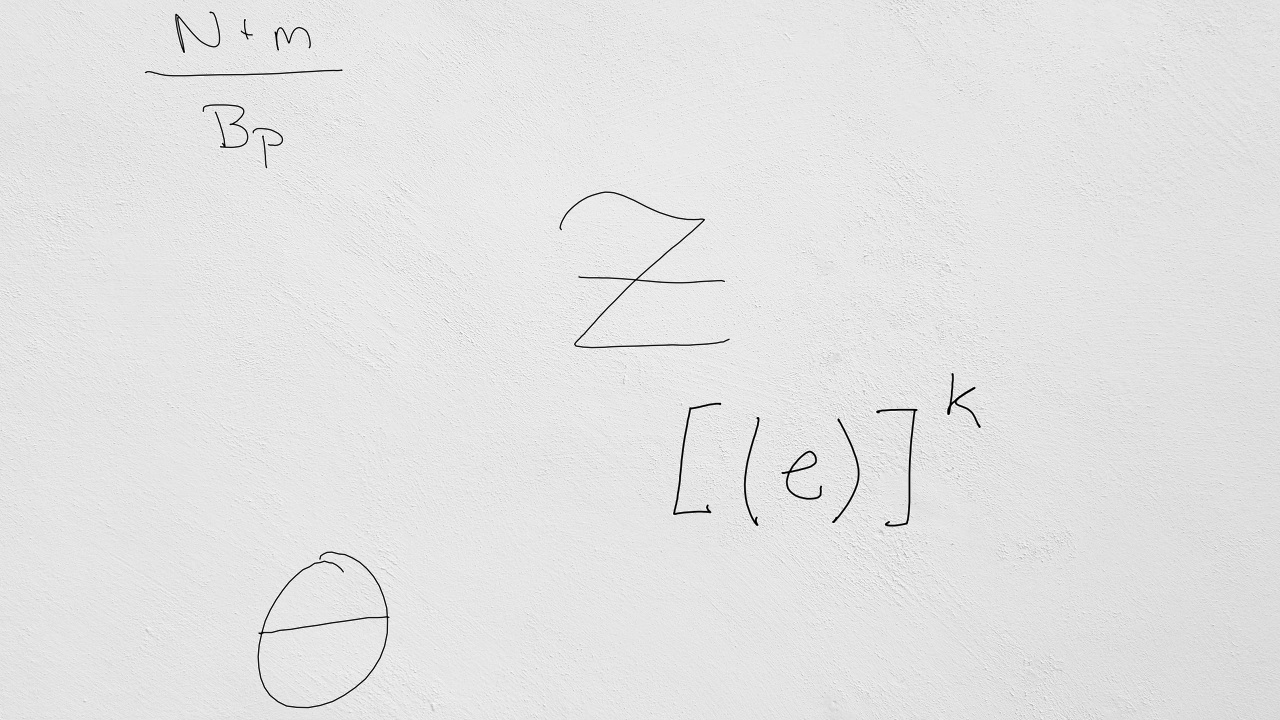 N + m
Bp
Z
[(e)]^k
θ